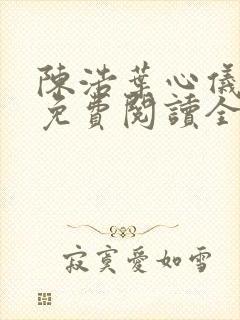 陳浩葉心儀
免費閱讀全
寂寞愛如雪